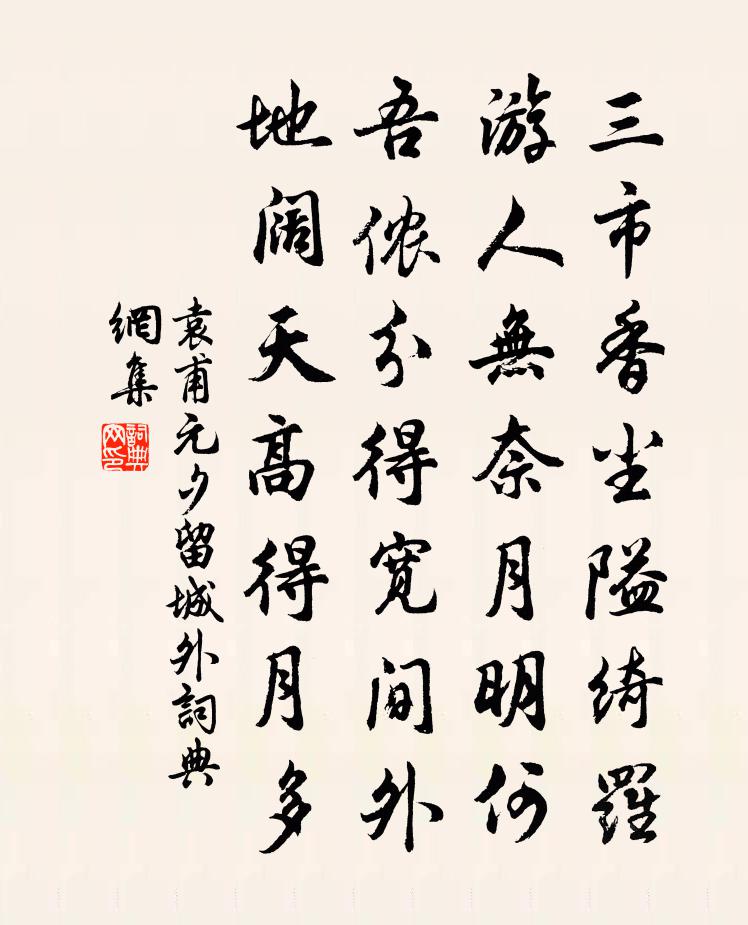 三市香尘隘绮羅
游人無奈月明何
吾侬分得宽间外
地阔天高得月多
袁甫元夕留城外詞典
網集
詞典
网印